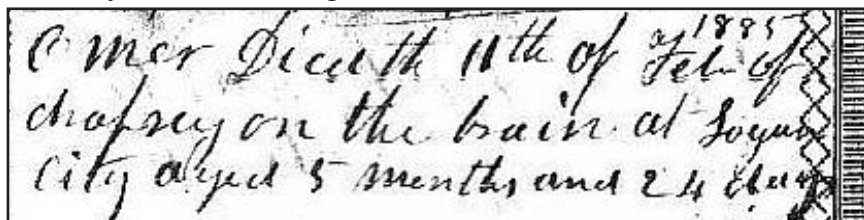 1885
Omer Died th 11th of Feb of
dropsey on the brain at Logan
City aged 5 months and 24 days